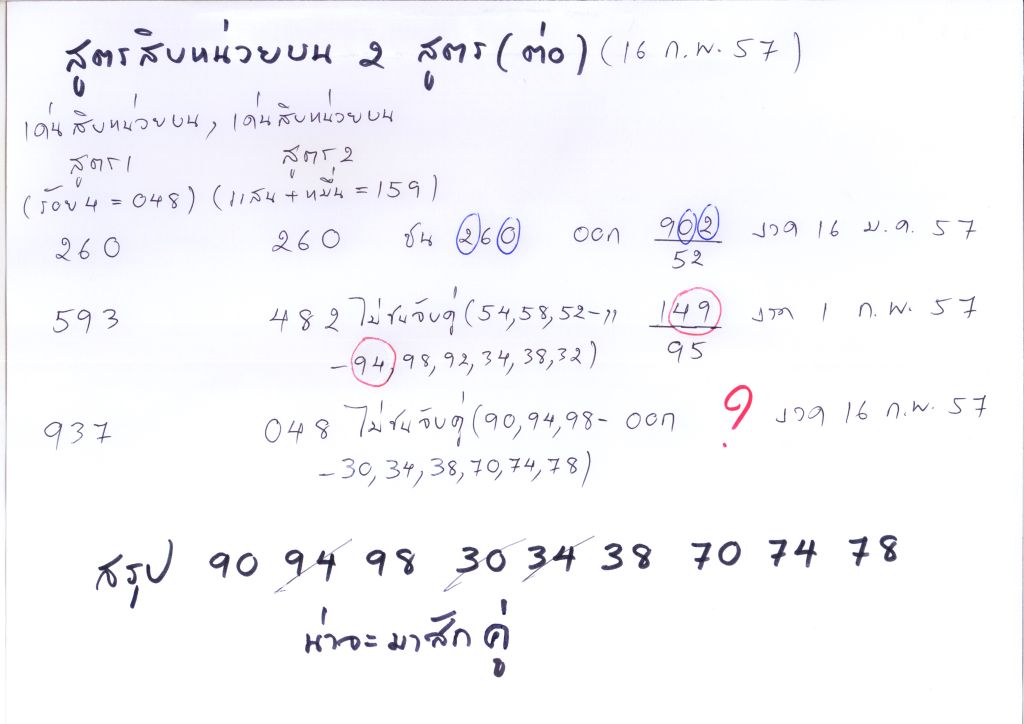 สูตรสิบหน่วยบน 2 สูตร (ต่อ) (16 ก.พ. 57)
เด่นสิบหน่วยบน, เด่นสิบหน่วยบน
สูตร1 สูตร2
(ร้อย4 = 048) (แสน+หมื่น = 159)
260 260 ชน 260 ออก 902 งวด 16 ม.ค. 57
52
593 482 ไม่ชนจับคู่ (54,58,52-,, 149 งวด 1 ก.พ. 57
-94,98,92,34,38,32) 95
937 048 ไม่ชนจับคู่ (90,94,98- ออก ? งวด 16 ก.พ. 57
-30,34,38,70,74,78)
สรุป 90 94 98 30 34 38 70 74 78
น่าจะมาสักคู่